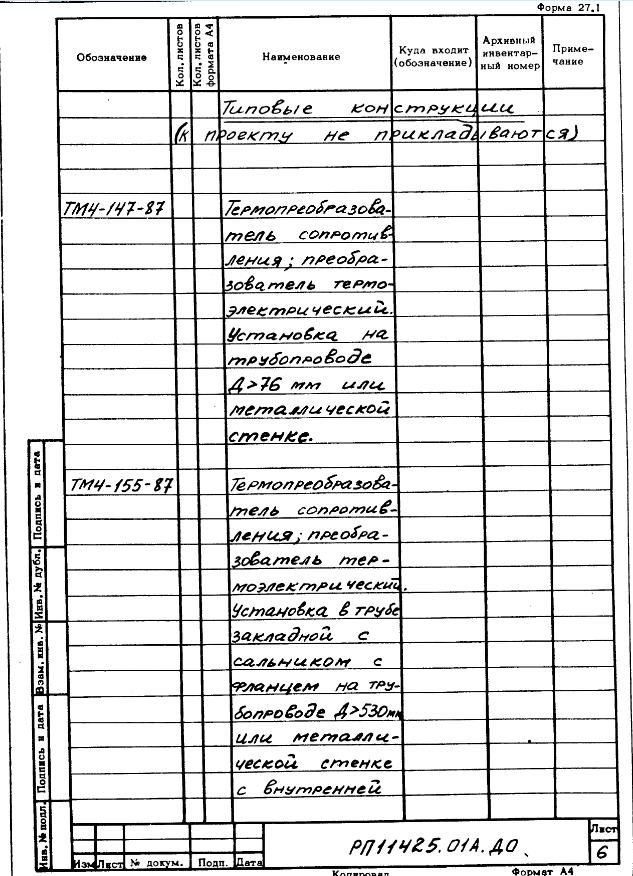 Форма 27.1
Обозначение
Кол. листов
Кол. листов формата А4
Наименование
Куда входит (обозначение)
Архивный инвентар-
ный номер
Приме-
чание
Типовые конструкции
(к проекту не прикладываются)
ТМ4-147-87 Термопреобразова-
тель сопротив-
ления; преобра-
зователь термо-
электрический.
Установка на
трубопроводе
Д>76 мм или
металлической
стенке.
ТМ4-155-87 Термопреобразова-
тель сопротив-
ления; преобра-
зователь тер-
моэлектрический.
Установка в трубе
закладной с
сальником с
фланцем на тру-
бопроводе Д>530мм
или металли-
ческой стенке
с внутренней
Подпись и дата
Инв. № дубл.
Взам. инв. №
Подпись и дата
Инв. № подл.
Изм Лист № докум. Подп. Дата
РП11425.01А.ДО
Лист
6
Копировал Формат А4